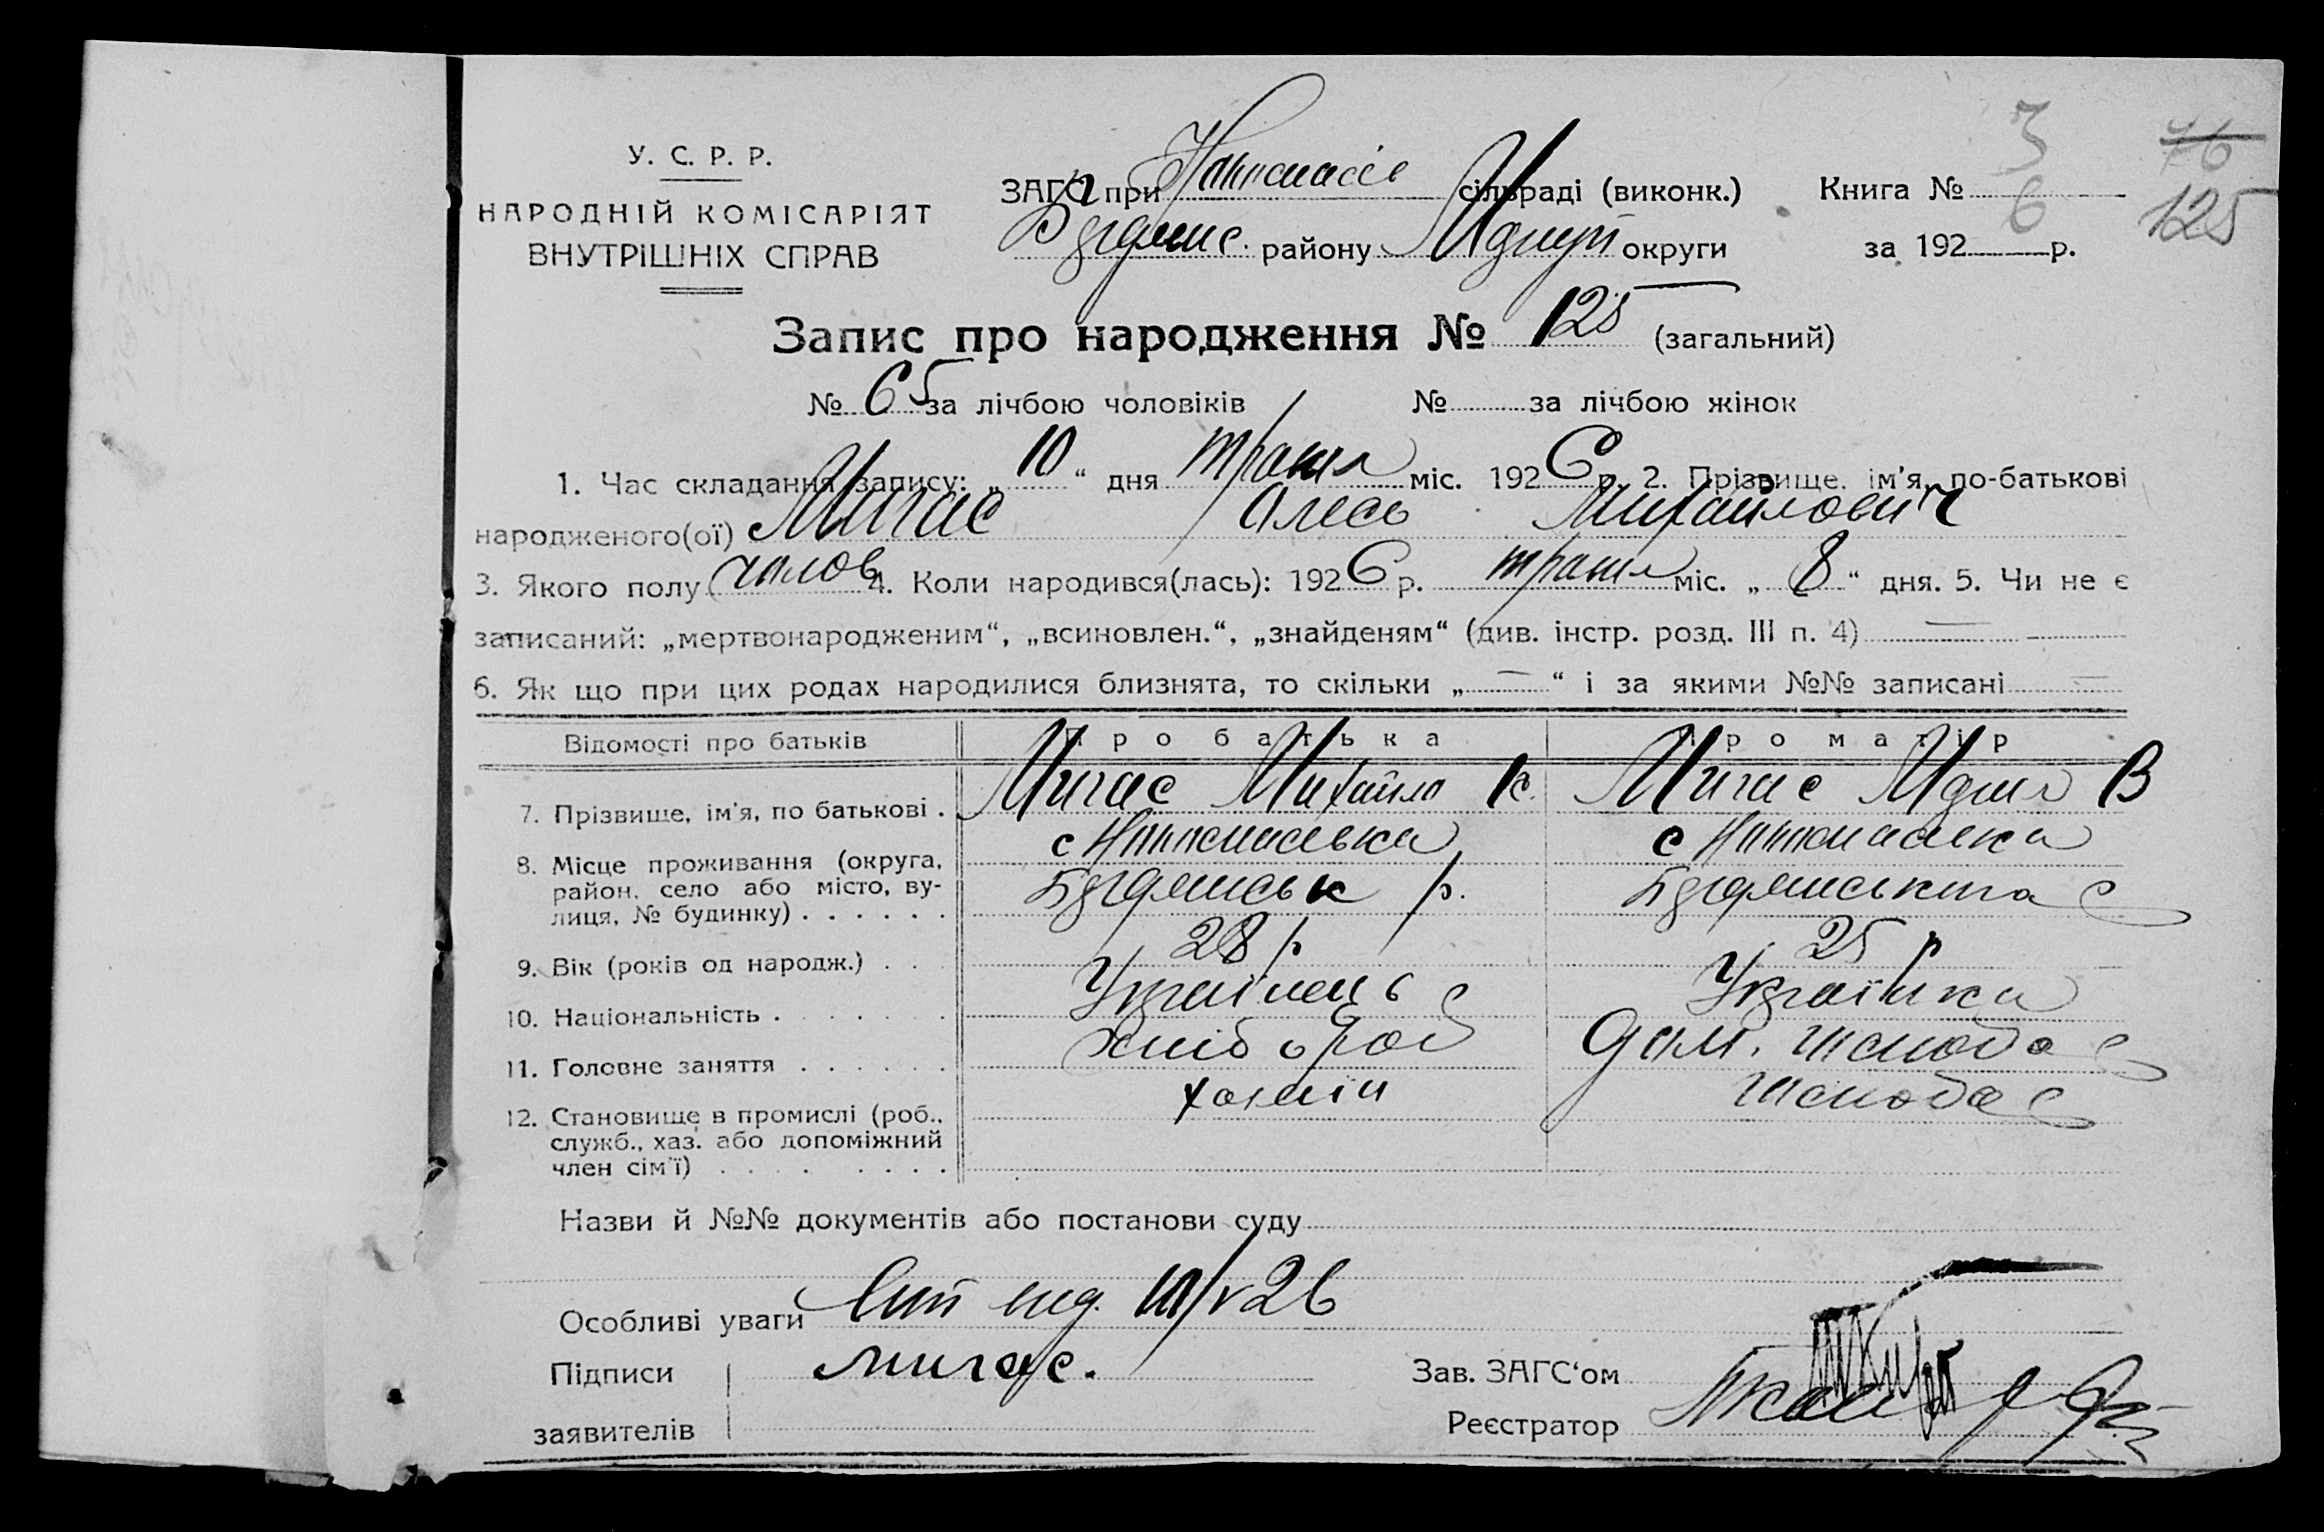 У. С. Р. Р.
НАРОДНІЙ КОМІСАРІЯТ
ВНУТРІШНІХ СПРАВ
ЗАГС при сільраді (виконк.)
району округи
Книга № 3
за 1926 р.
76
125
Запис про народження № 125 (загальний)
№ 65 за лічбою чоловіків № за лічбою жінок
1. Час складання запису: „10“ дня травня міс. 1926 р. 2. Прізвище, ім'я, по-батькові
народженого(ої) Мигас Олесь Михайлович
3. Якого полу чолов 4. Коли народився(лась): 1926 р. травня міс. „8“ дня. 5. Чи не є
записаний: „мертвонародженим“, „всиновлен.“, „знайденям“ (див. інстр. розд. III п. 4) —
6. Як що при цих родах народилися близнята, то скільки „—“ і за якими №№ записані —
Відомості про батьків Про батька Про матір
7. Прізвище, ім'я, по батькові . Мигас Михайло К. Мигас В
8. Місце проживання (округа, с с
район, село або місто, ву- р.
лиця, № будинку) . . . . . .
9. Вік (років од народж.) . . 28 р 25 р
10. Національність . . . . . . . Українець Українка
11. Головне заняття . . . . . . Хлібороб Дом.
12. Становище в промислі (роб., хазяїн
служб., хаз. або допоміжний
член сім'ї) . . . . . . . .
Назви й №№ документів або постанови суду
Особливі уваги вид. 10/V 26
Підписи Мигас.
заявителів
Зав. ЗАГС'ом
Реєстратор